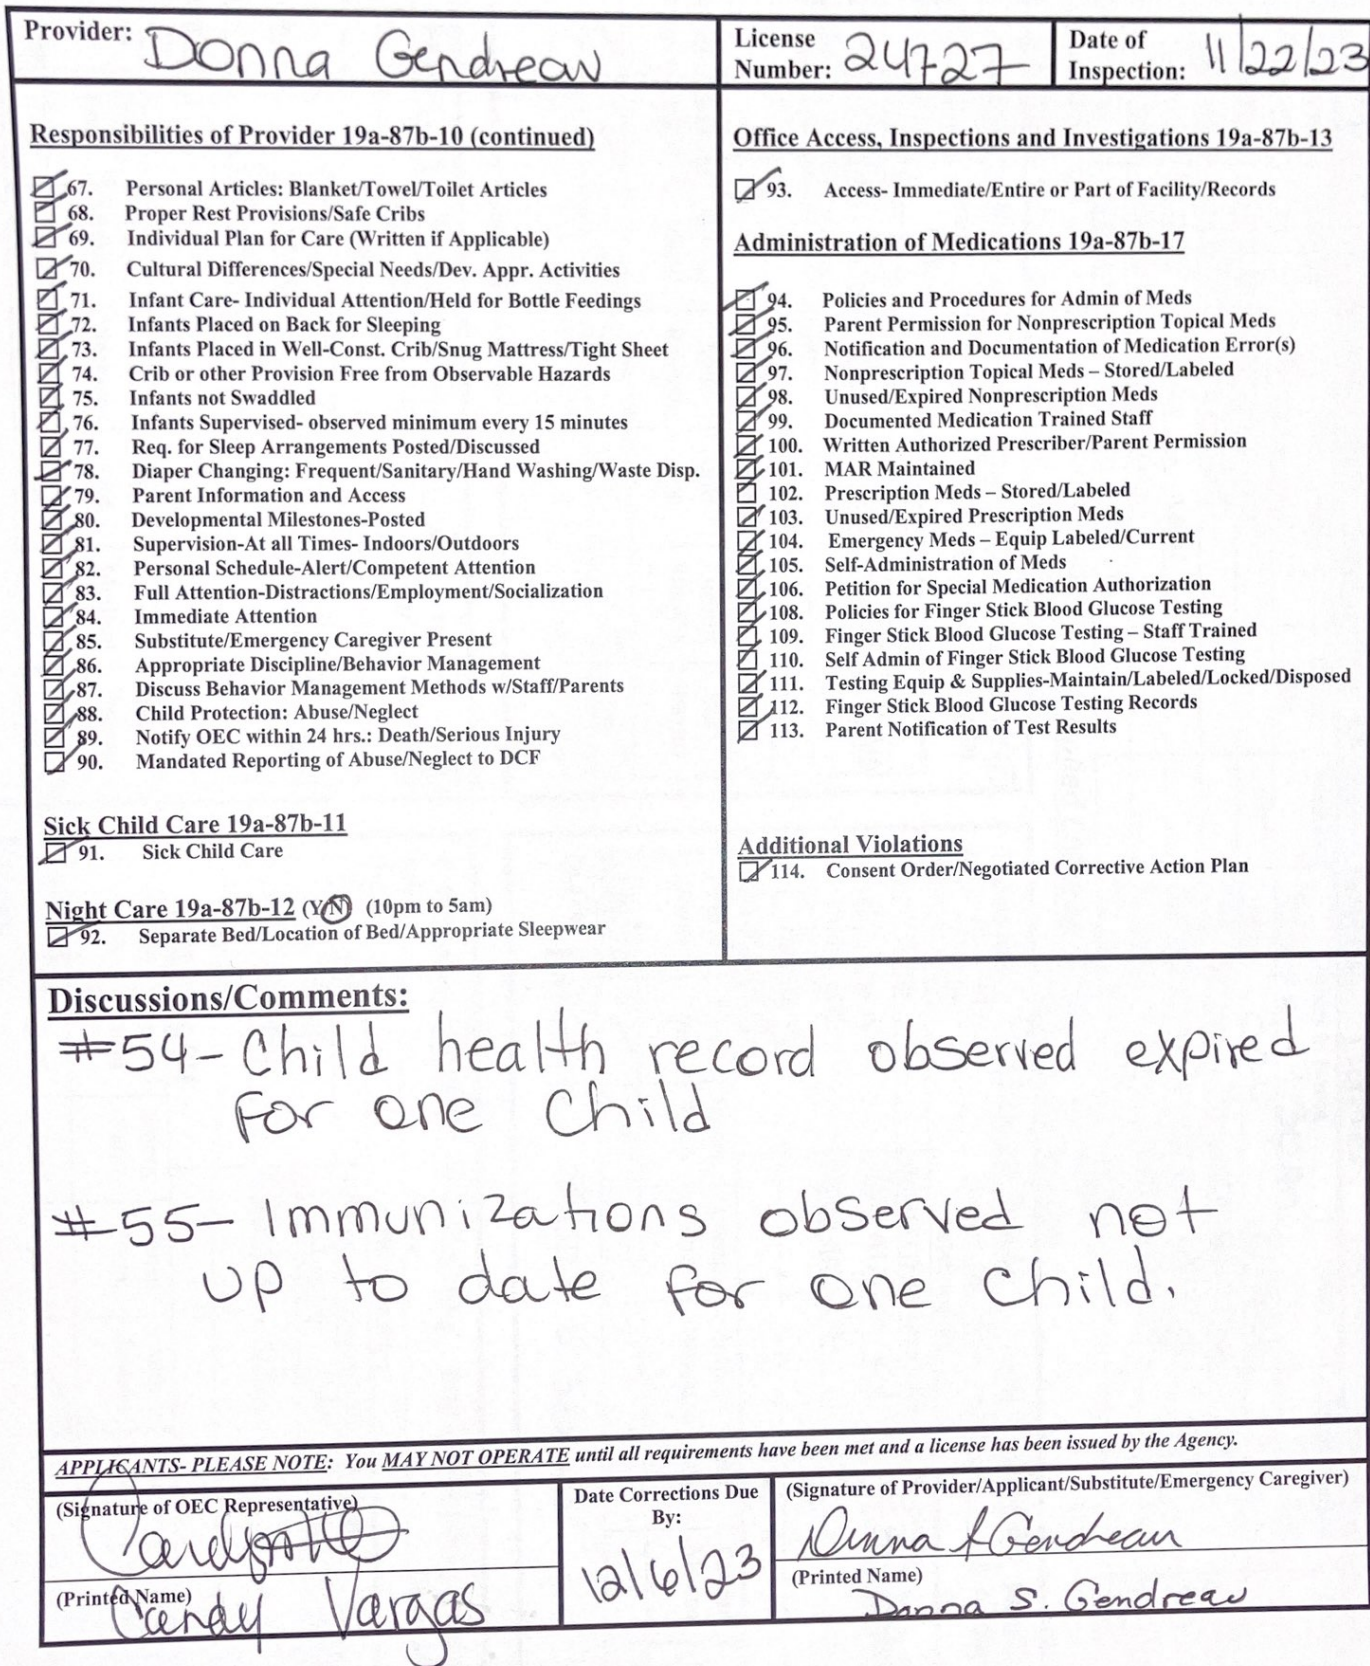 Provider: Donna Gendreau
License Number: 24727
Date of Inspection: 11/22/23
Responsibilities of Provider 19a-87b-10 (continued)
67. Personal Articles: Blanket/Towel/Toilet Articles
68. Proper Rest Provisions/Safe Cribs
69. Individual Plan for Care (Written if Applicable)
70. Cultural Differences/Special Needs/Dev. Appr. Activities
71. Infant Care- Individual Attention/Held for Bottle Feedings
72. Infants Placed on Back for Sleeping
73. Infants Placed in Well-Const. Crib/Snug Mattress/Tight Sheet
74. Crib or other Provision Free from Observable Hazards
75. Infants not Swaddled
76. Infants Supervised- observed minimum every 15 minutes
77. Req. for Sleep Arrangements Posted/Discussed
78. Diaper Changing: Frequent/Sanitary/Hand Washing/Waste Disp.
79. Parent Information and Access
80. Developmental Milestones-Posted
81. Supervision-At all Times- Indoors/Outdoors
82. Personal Schedule-Alert/Competent Attention
83. Full Attention-Distractions/Employment/Socialization
84. Immediate Attention
85. Substitute/Emergency Caregiver Present
86. Appropriate Discipline/Behavior Management
87. Discuss Behavior Management Methods w/Staff/Parents
88. Child Protection: Abuse/Neglect
89. Notify OEC within 24 hrs.: Death/Serious Injury
90. Mandated Reporting of Abuse/Neglect to DCF
Sick Child Care 19a-87b-11
91. Sick Child Care
Night Care 19a-87b-12 (Y/N) (10pm to 5am)
92. Separate Bed/Location of Bed/Appropriate Sleepwear
Office Access, Inspections and Investigations 19a-87b-13
93. Access- Immediate/Entire or Part of Facility/Records
Administration of Medications 19a-87b-17
94. Policies and Procedures for Admin of Meds
95. Parent Permission for Nonprescription Topical Meds
96. Notification and Documentation of Medication Error(s)
97. Nonprescription Topical Meds – Stored/Labeled
98. Unused/Expired Nonprescription Meds
99. Documented Medication Trained Staff
100. Written Authorized Prescriber/Parent Permission
101. MAR Maintained
102. Prescription Meds – Stored/Labeled
103. Unused/Expired Prescription Meds
104. Emergency Meds – Equip Labeled/Current
105. Self-Administration of Meds
106. Petition for Special Medication Authorization
108. Policies for Finger Stick Blood Glucose Testing
109. Finger Stick Blood Glucose Testing – Staff Trained
110. Self Admin of Finger Stick Blood Glucose Testing
111. Testing Equip & Supplies-Maintain/Labeled/Locked/Disposed
112. Finger Stick Blood Glucose Testing Records
113. Parent Notification of Test Results
Additional Violations
114. Consent Order/Negotiated Corrective Action Plan
Discussions/Comments:
#54- Child health record observed expired
for one child
#55- Immunizations observed not
up to date for one child.
APPLICANTS- PLEASE NOTE: You MAY NOT OPERATE until all requirements have been met and a license has been issued by the Agency.
(Signature of OEC Representative)
(Printed Name)
Candy Vargas
Date Corrections Due
By:
12/6/23
(Signature of Provider/Applicant/Substitute/Emergency Caregiver)
Donna S Gendreau
(Printed Name)
Donna S. Gendreau